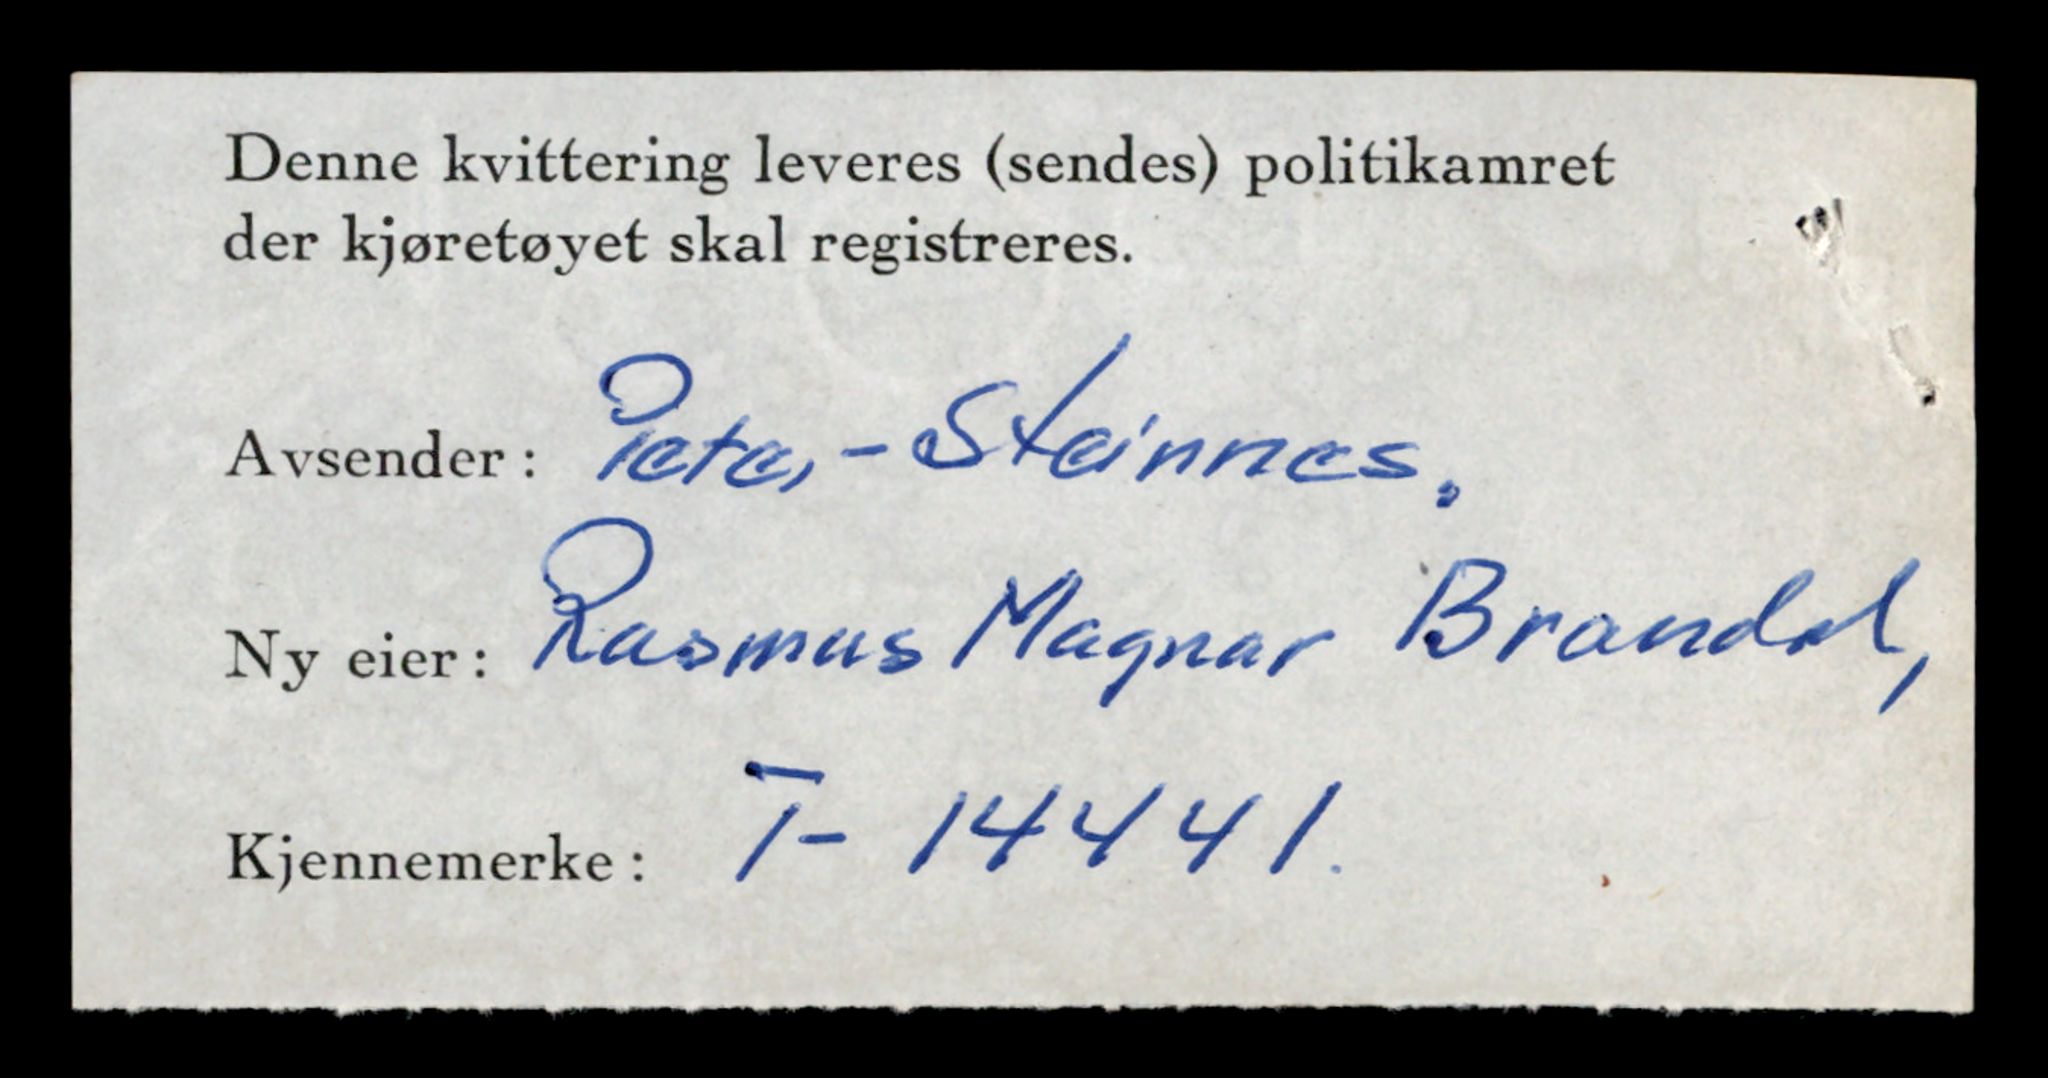 Denne kvittering leveres (sendes) politikamret
der kjøretøyet skal registreres.
Avsender: Peter - Steinnes.
Ny eier: Rasmus Magnar Brandal,
Kjennemerke: T- 14441.